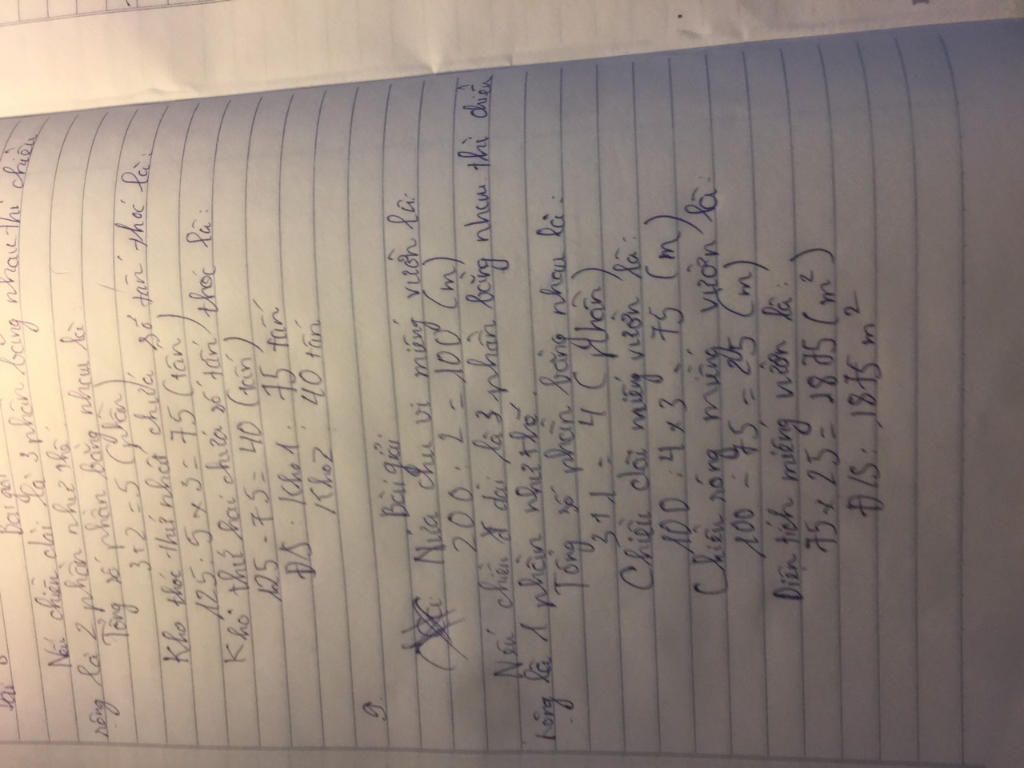 bài 8 Bài giải
Nếu chiều dài là 3 phần bằng nhau thì chiều
rộng là 2 phần như thế.
Tổng số phần bằng nhau là:
3+2 = 5 (phần)
Kho thóc thứ nhất chứa số tấn thóc là:
125 : 5 x 3 = 75 (tấn)
Kho thứ hai chứa số tấn thóc là:
125 - 75 = 40 (tấn)
ĐS: Kho 1: 75 tấn
Kho 2: 40 tấn
9 Bài giải
Nửa chu vi miếng vườn là:
200 : 2 = 100 (m)
Nếu chiều dài là 3 phần bằng nhau thì chiều
rộng là 1 phần như thế.
Tổng số phần bằng nhau là:
3+1 = 4 (phần)
Chiều dài miếng vườn là:
100 : 4 x 3 = 75 (m)
Chiều rộng miếng vườn là:
100 - 75 = 25 (m)
Diện tích miếng vườn là:
75 x 25 = 1875 (m²)
Đ/S: 1875 m²